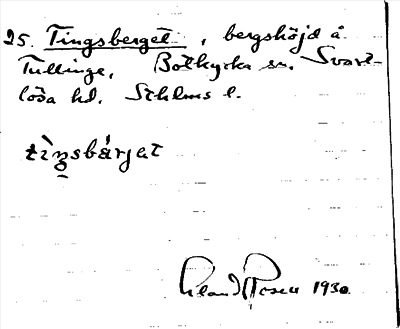 25. Tingsberget, bergshöjd å
Tullinge, Botkyrka sn. Svart-
lösa hd. Sthlms l.
tìŋsbárjat
Roland Rosen 1930.